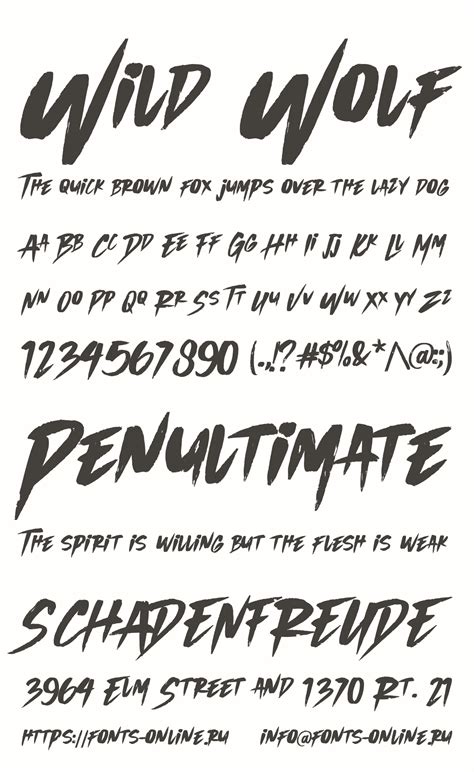 Wild Wolf
The quick brown fox jumps over the lazy dog
Aa Bb Cc Dd Ee Ff Gg Hh Ii Jj Kk Ll Mm
Nn Oo Pp Qq Rr Ss Tt Uu Vv Ww Xx Yy Zz
1234567890 (.,!?#$%&*/\@:;)
Penultimate
The spirit is willing but the flesh is weak
SCHADENFREUDE
3964 Elm Street and 1370 Rt. 21
https://fonts-online.ru info@fonts-online.ru